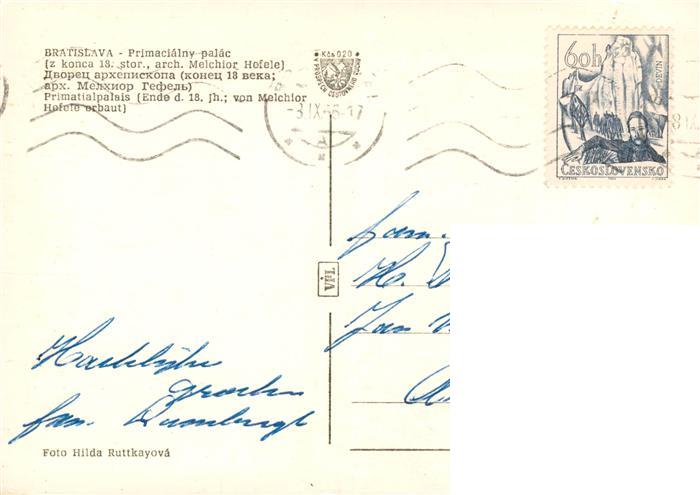 BRATISLAVA - Primaciálny palác
(z konca 18. stor., arch. Melchior Hofele)
Дворец архепископа (конец 18 века;
арх. Мелхиор Гефель)
Primatialpalais (Ende d. 18. Jh.; von Melchior
Hofele erbaut)
Kčs 0,20
-3.IX.66-17
60h
DEVÍN
ČESKOSLOVENSKO
fam.
H.
Jan
VčL
Hartelijke
groeten
fam.
Foto Hilda Ruttkayová